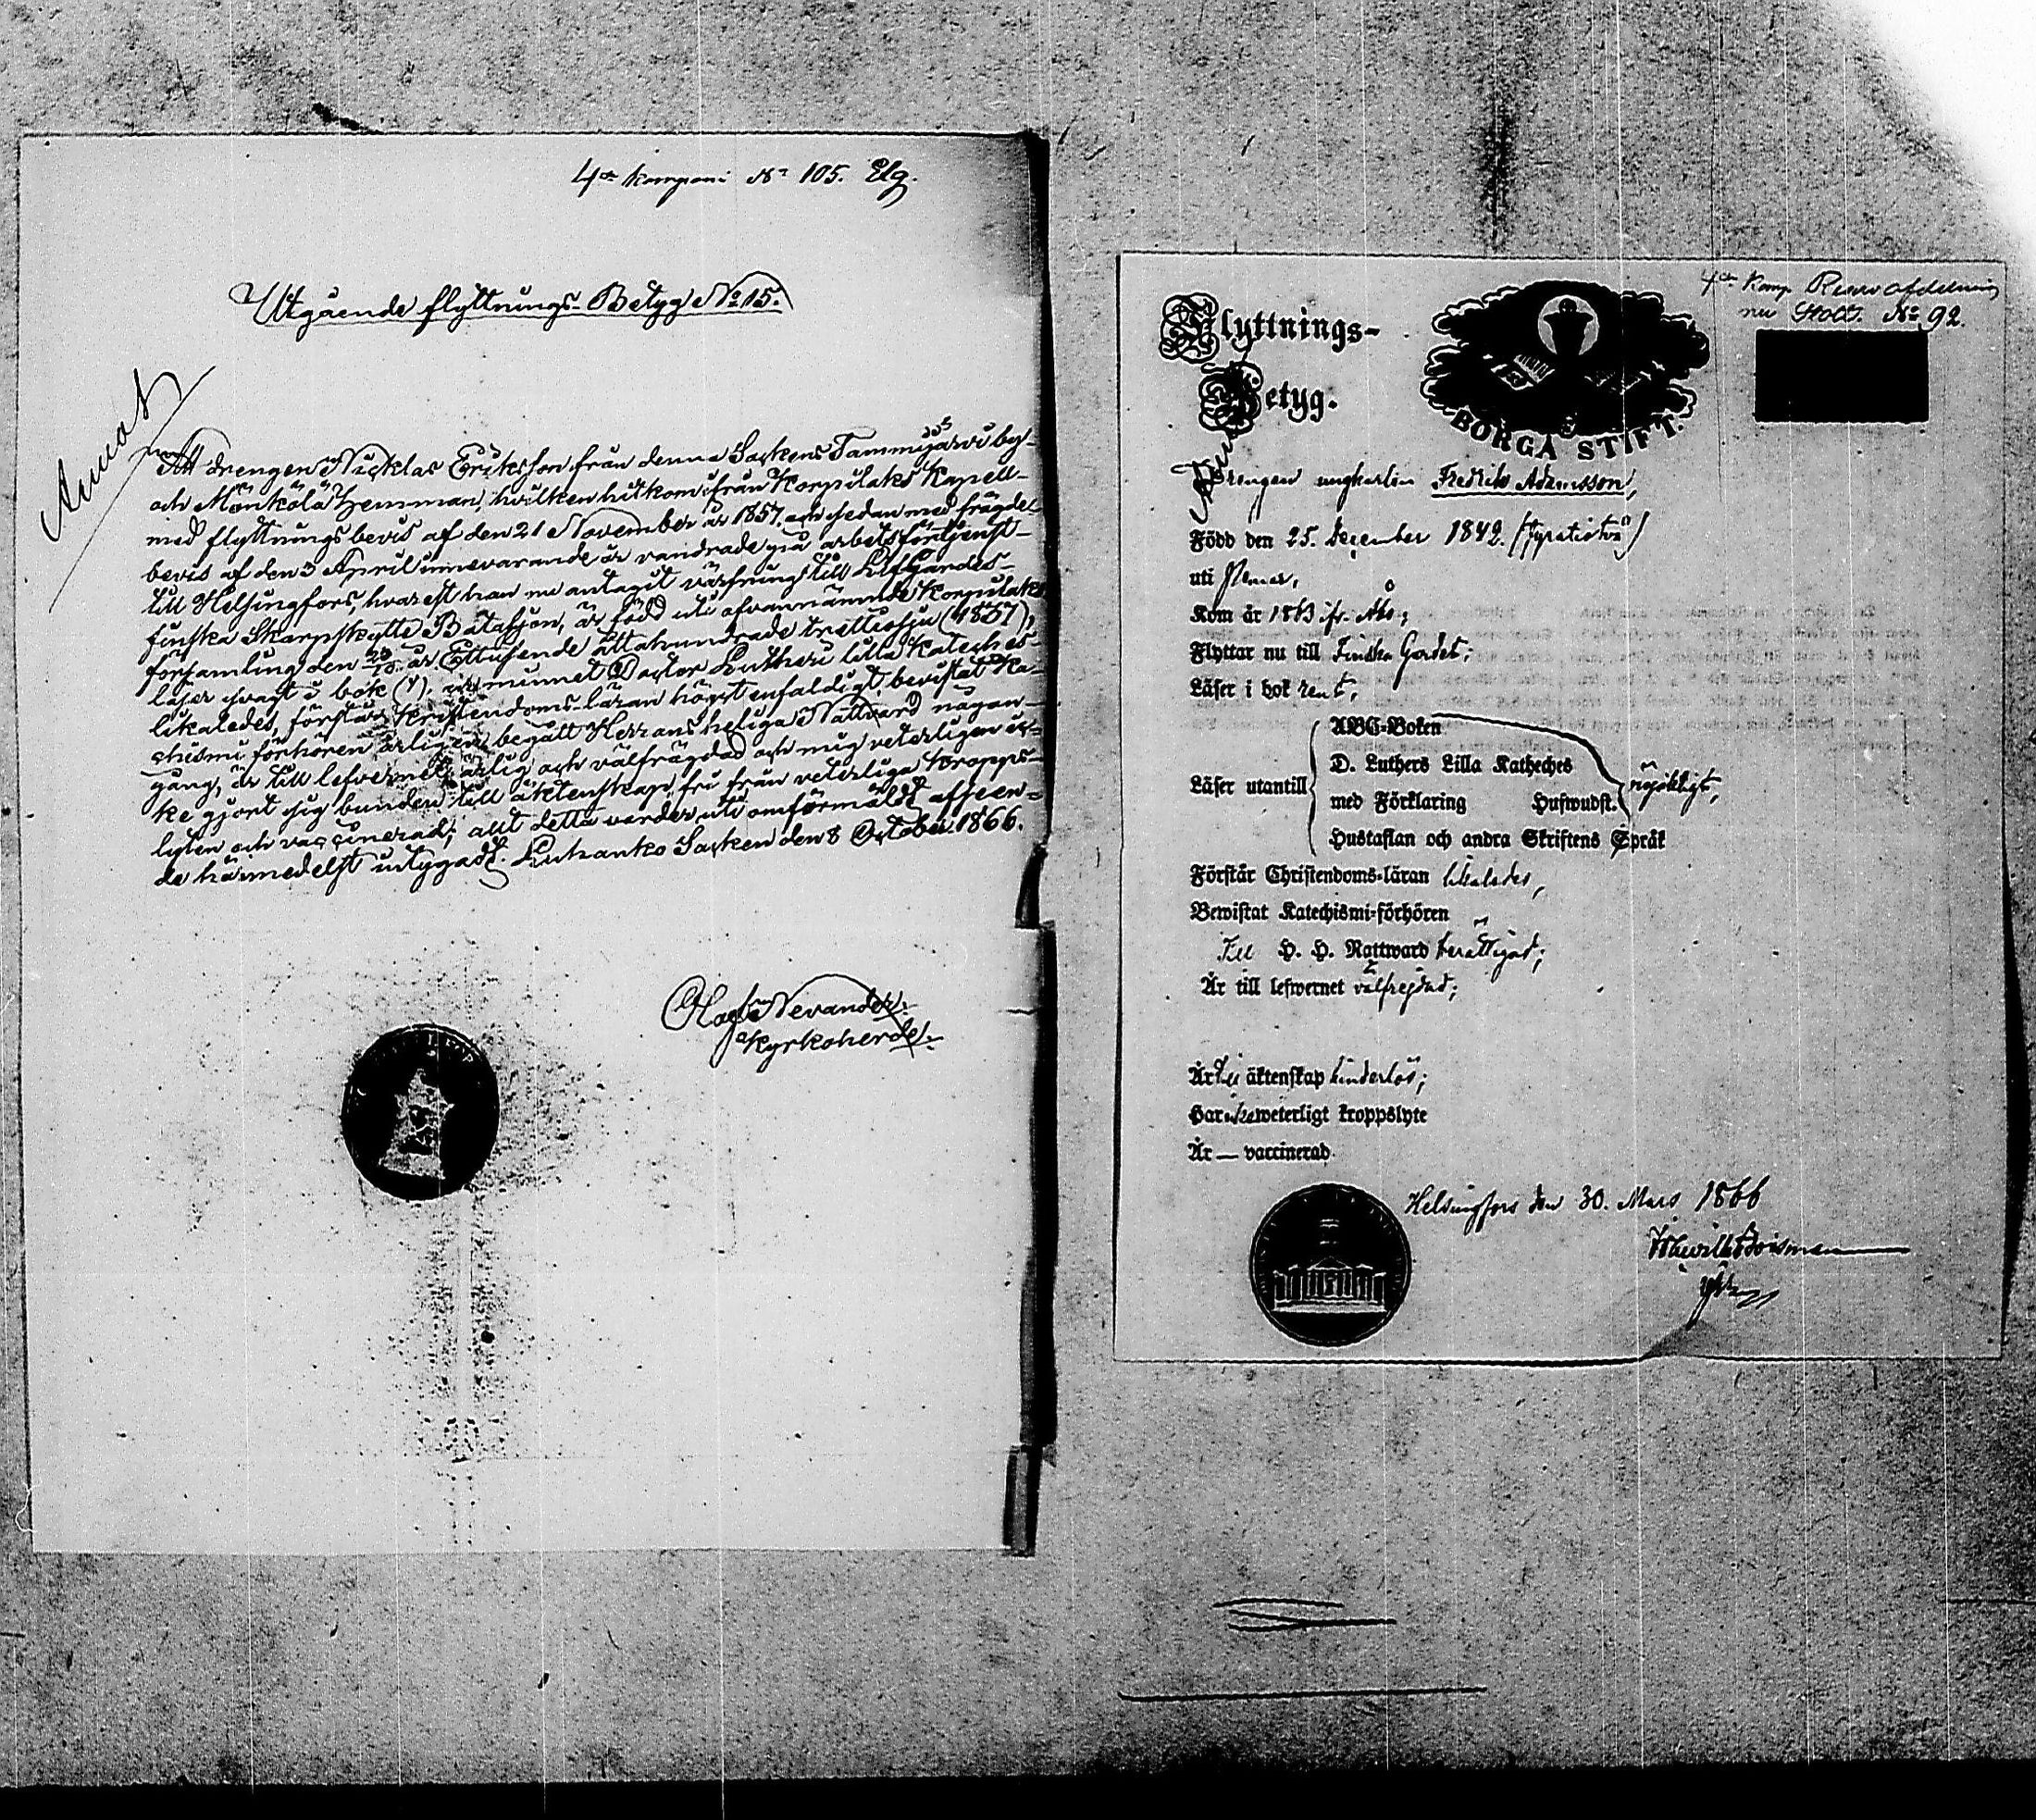 4de Kompani No 105. Elg.
Utgående flyttnings-Betyg No 15.
Att drengen Nicklas Eriksson från denna Sockens Tammijärvi by-
och Mönkölä hemman, hvilken hitkom ifrån Korpilaks Kapell-
med flyttningsbevis af den 21 November år 1857, och sedan med frägde-
bevis af den 3 April innevarande år vandrade på arbetsförtjenst-
till Helsingfors, hvarest han nu antagit värfning till LifGardes-
finska Skarpskytte Bataljon, är född uti ofvannämnde Korpilaks
församling den år Ettusende åttahundrade trettiosju (1837),
läser svagt i bok (y), ur minnet Doctor Lutheri lilla Kateches-
likaledes, förstår Kristendoms-läran högst enfaldigt, bevistat Ka-
chismi förhören årligen, begått Herrans heliga Nattvard någon-
gång, är till lefvernet ärlig och välfrägdad och mig veterligen ic-
ke gjort sig bunden till äktenskap, fri från veterliga kropps-
lyten och vaccinerad; allt detta varder, uti omförmäldt afseen-
de härmedelst intygadt. Luhanko Socken den 8 October 1866.
Nevander.
Kyrkoherde.
4de Komp. Reservafdelning
nu Stolt. No 92.
Flyttnings-
Betyg.
BORGÅ STIFT.
Drengen ungkarlen Fredrik Adamsson,
Född den 25. December 1842. (fyratiotvå)
uti
Kom år 1863 ifr. Åbo;
Flyttar nu till Finska Gardet;
Läser i bok rent,
ABC-Boken
D. Luthers Lilla Katheches
Läser utantill
med Förklaring Hufwudst.
Hustaflan och andra Skriftens Språk
Förstår Christendoms-läran likaledes,
Bewistat Katechismi-förhören
Till H. H. Nattward berättigad;
Är till lefwernet välfrejdad;
Är till äktenskap hinderlös;
Har weterligt kroppslyte
Är — vaccinerad.
Helsingfors den 30. Mars 1866